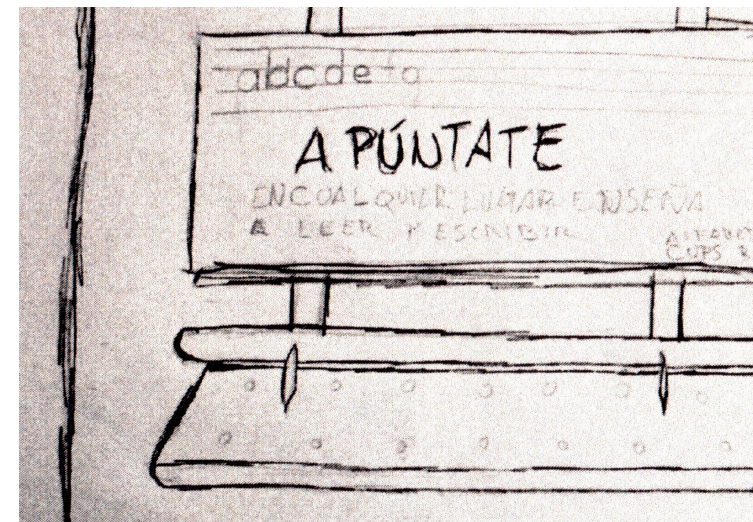 abcdefg
APÚNTATE
ENCUALQUIER LUGAR ENSEÑA
A LEER Y ESCRIBIR
CUPS